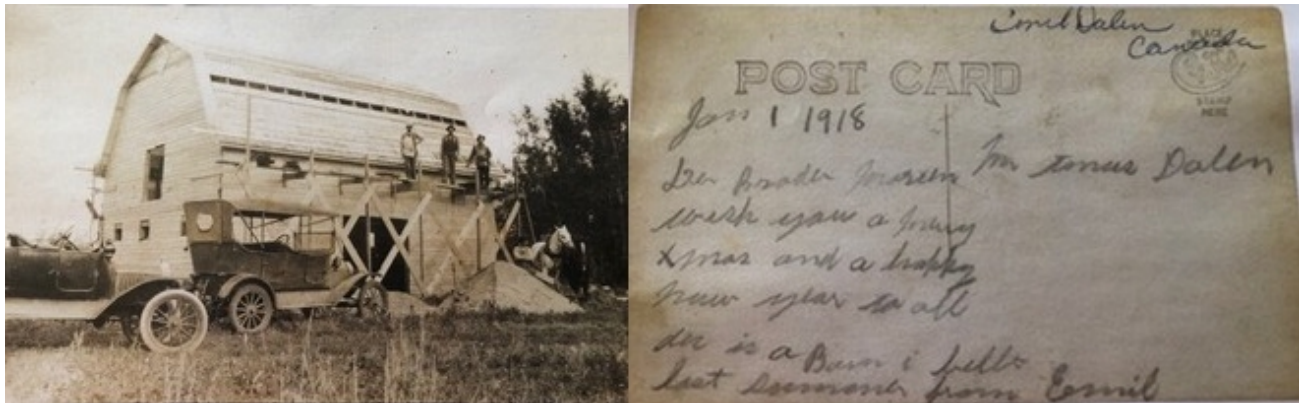 Emil Dalen
Canada
PLACE
STAMP
HERE
POST CARD
Jan 1 1918
Mr tomas Dalen
Der Broder
wesh you a mery
xmas and a happy
new year to all
der is a Barn i bellt
last sommer from Eemil